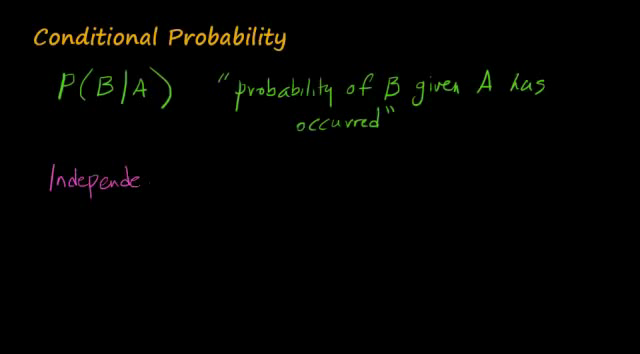 Conditional Probability
P(B|A) "probability of B given A has
occurred"
Independe